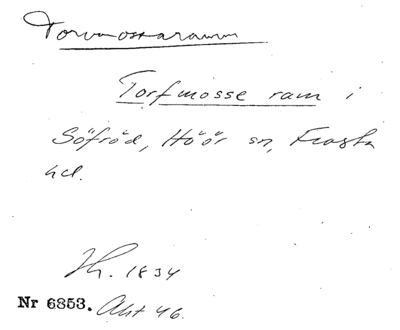 Torvmossaramm
Torfmosse ram i
Söfröd, Höör sn, Frosta
hd.
Jh. 1834
Nr 6853. Akt 46.